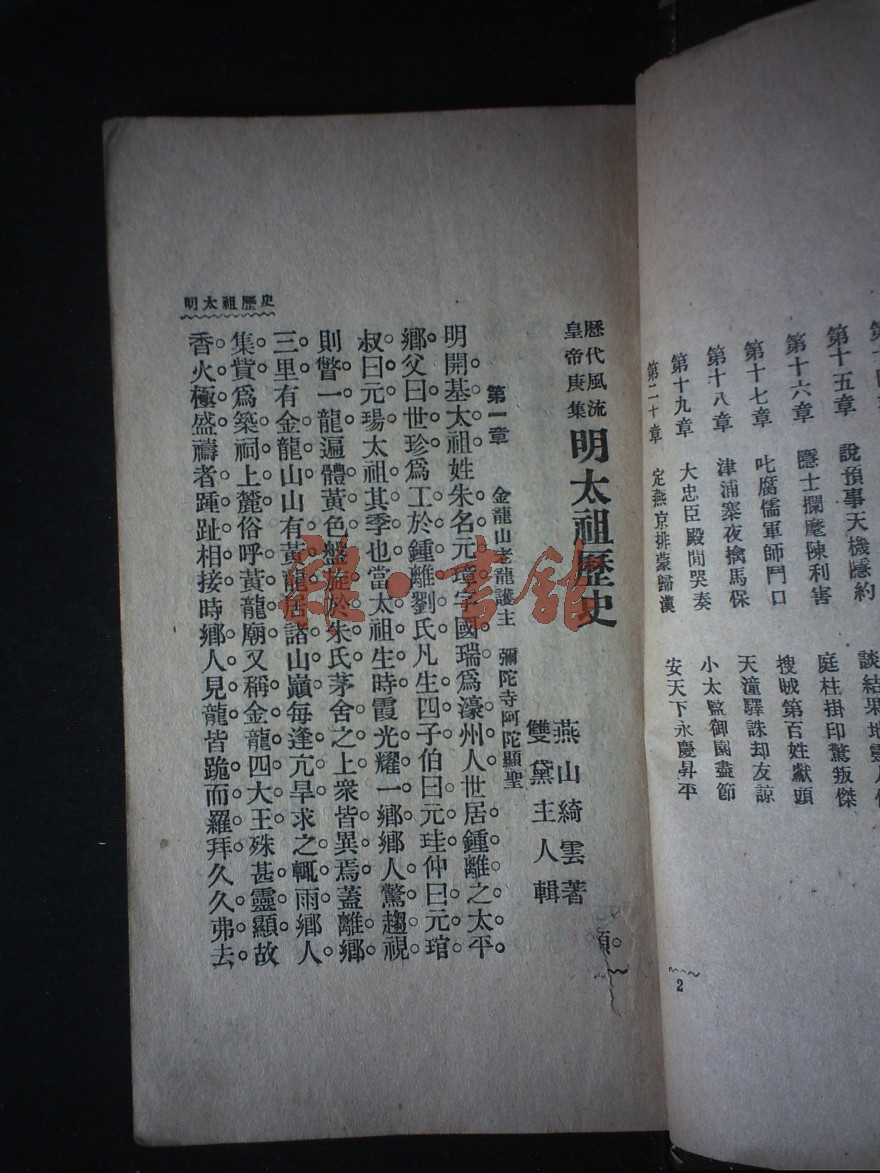 第十五章 說預事天機隱約
第十六章 隱士攔麾陳利害 庭柱掛印驚叛傑
第十七章 叱腐儒軍師鬥口 搜賊第百姓獻頭
第十八章 津浦寨夜擒馬保 天潼驛誅却友諒
第十九章 大忠臣殿間哭奏 小太監御園盡節
第二十章 定燕京排蒙歸漢 安天下永慶昇平
2
歷代風流
皇帝庚集
明太祖歷史
燕山綺雲著
雙黛主人輯
第一章 金龍山老龍護主 彌陀寺阿陀顯聖
明開基太祖姓朱名元璋字國瑞爲濠州人世居鍾離之太平。
鄉父曰世珍爲工於鍾離劉氏凡生四子伯曰元珪仲曰元琯。
叔曰元瑒太祖其季也當太祖生時霞光耀一鄉鄉人驚趨視。
則瞥一龍遍體黃色盤旋於朱氏茅舍之上衆皆異焉蓋離鄉
三里有金龍山山有黃龍居諸山巔每逢亢旱求之輒雨鄉人
集貲爲築祠上麓俗呼黃龍廟又稱金龍四大王殊甚靈顯故
香火極盛禱者踵趾相接時鄉人見龍皆跪而羅拜久久弗去。
明太祖歷史
雜·書館